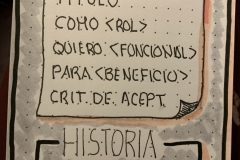 TITULO
COMO <ROL>
QUIERO <FUNCIONAL>
PARA <BENEFICIO>
CRIT. DE ACEPT.
HISTORIA